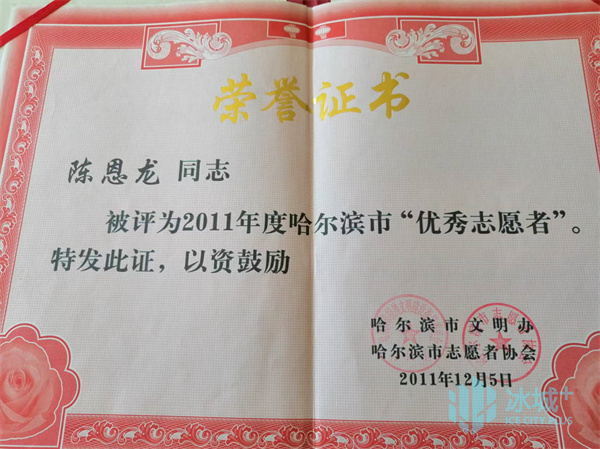 荣誉证书
陈恩龙 同志
被评为2011年度哈尔滨市“优秀志愿者”。
特发此证，以资鼓励
哈尔滨市文明办
哈尔滨市志愿者协会
2011年12月5日
冰城+
ICE CITY PLUS